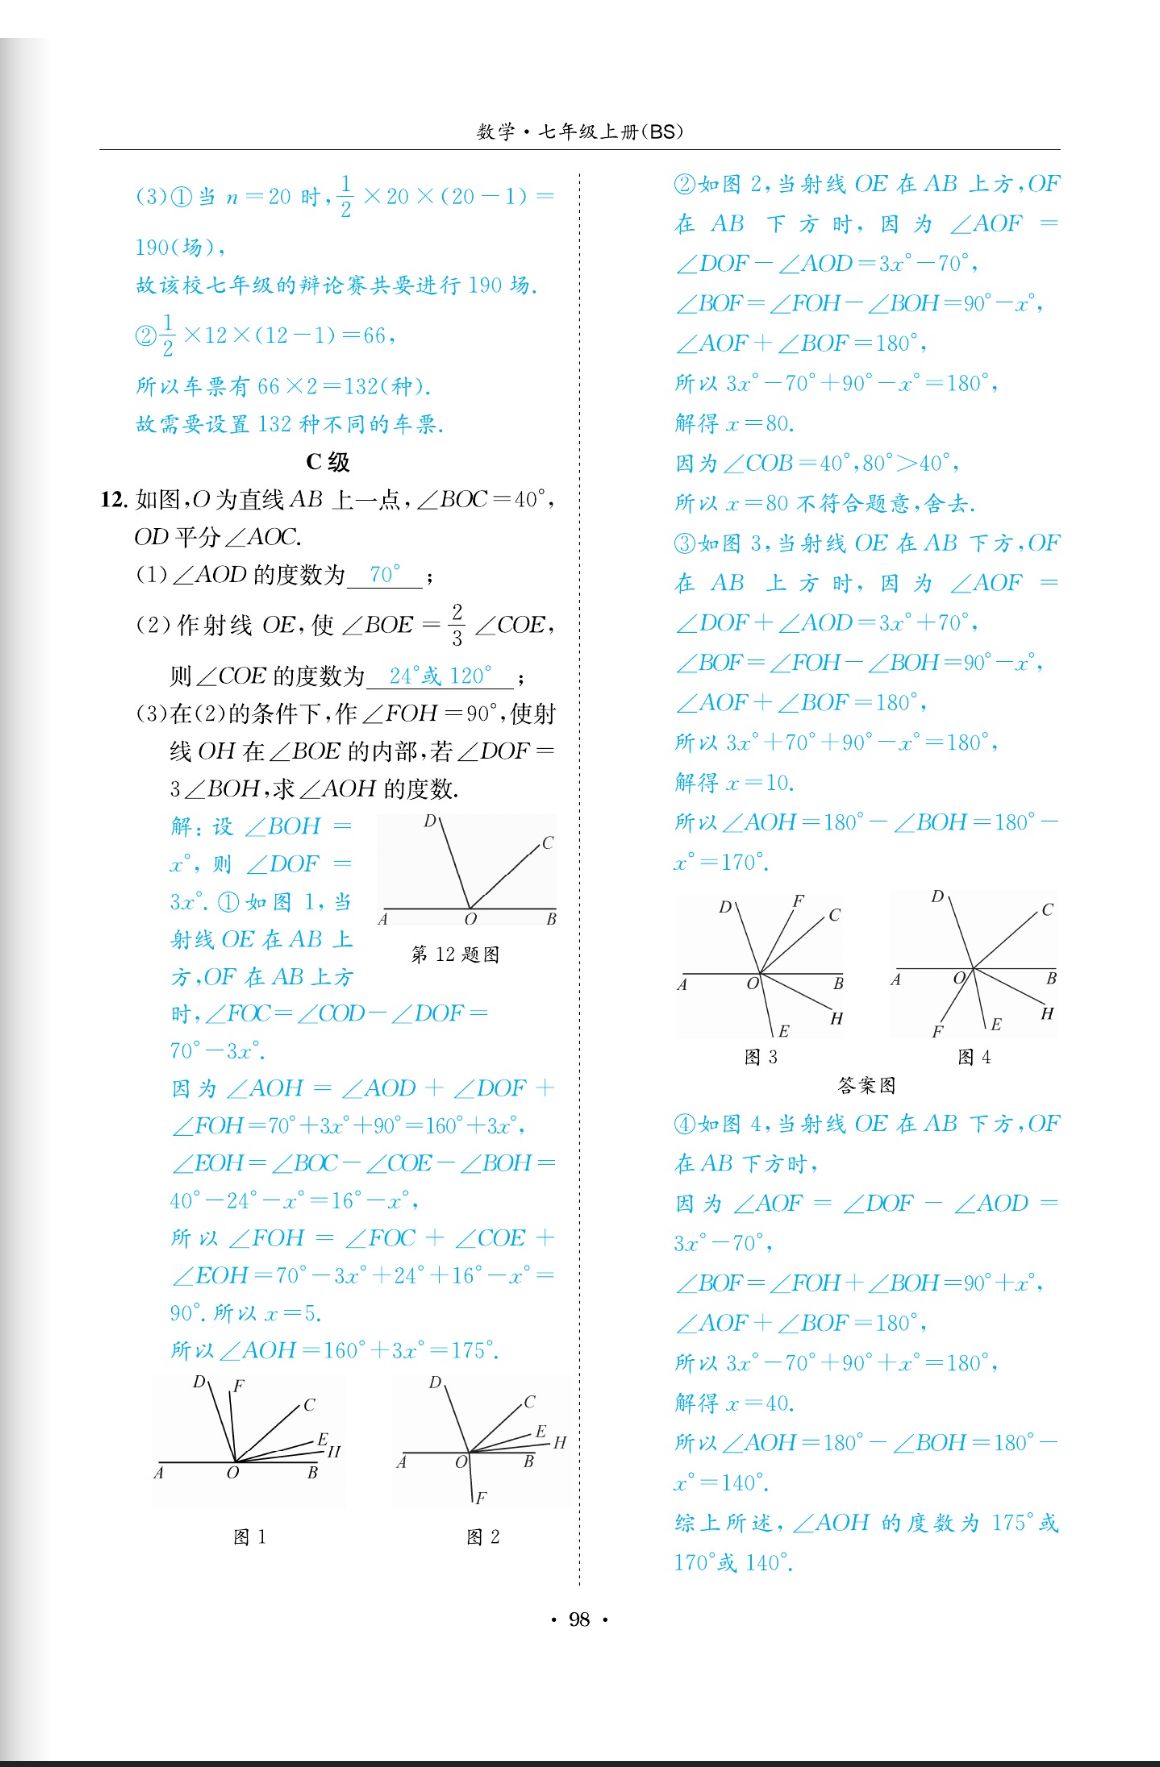 数学·七年级上册(BS)
(3)①当 n=20 时,1/2×20×(20-1)=
190(场),
故该校七年级的辩论赛共要进行 190 场.
②1/2×12×(12-1)=66,
所以车票有 66×2=132(种).
故需要设置 132 种不同的车票.
C 级
12. 如图,O 为直线 AB 上一点,∠BOC=40°,
OD 平分∠AOC.
(1)∠AOD 的度数为 70° ;
(2)作射线 OE,使∠BOE=2/3∠COE,
则∠COE 的度数为 24°或 120° ;
(3)在(2)的条件下,作∠FOH=90°,使射
线 OH 在∠BOE 的内部,若∠DOF=
3∠BOH,求∠AOH 的度数.
解:设 ∠BOH =
x°,则 ∠DOF =
3x°.①如图 1,当
射线 OE 在 AB 上
方,OF 在 AB 上方
D
C
A
O
B
第 12 题图
时,∠FOC=∠COD-∠DOF=
70°-3x°.
因为∠AOH=∠AOD+∠DOF+
∠FOH=70°+3x°+90°=160°+3x°,
∠EOH=∠BOC-∠COE-∠BOH=
40°-24°-x°=16°-x°,
所以∠FOH=∠FOC+∠COE+
∠EOH=70°-3x°+24°+16°-x°=
90°.所以 x=5.
所以∠AOH=160°+3x°=175°.
D
F
C
E
H
A
O
B
图 1
D
C
E
H
A
O
B
F
图 2
②如图 2,当射线 OE 在 AB 上方,OF
在 AB 下方时,因为∠AOF=
∠DOF-∠AOD=3x°-70°,
∠BOF=∠FOH-∠BOH=90°-x°,
∠AOF+∠BOF=180°,
所以 3x°-70°+90°-x°=180°,
解得 x=80.
因为∠COB=40°,80°>40°,
所以 x=80 不符合题意,舍去.
③如图 3,当射线 OE 在 AB 下方,OF
在 AB 上方时,因为∠AOF=
∠DOF+∠AOD=3x°+70°,
∠BOF=∠FOH-∠BOH=90°-x°,
∠AOF+∠BOF=180°,
所以 3x°+70°+90°-x°=180°,
解得 x=10.
所以∠AOH=180°-∠BOH=180°-
x°=170°.
D
F
C
A
O
B
H
E
图 3
D
C
A
O
B
H
F
E
图 4
答案图
④如图 4,当射线 OE 在 AB 下方,OF
在 AB 下方时,
因为∠AOF=∠DOF-∠AOD=
3x°-70°,
∠BOF=∠FOH+∠BOH=90°+x°,
∠AOF+∠BOF=180°,
所以 3x°-70°+90°+x°=180°,
解得 x=40.
所以∠AOH=180°-∠BOH=180°-
x°=140°.
综上所述,∠AOH 的度数为 175°或
170°或 140°.
· 98 ·